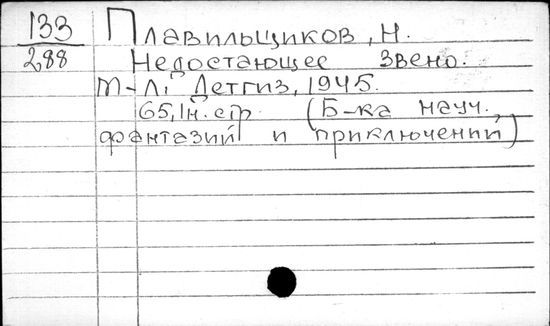 133 Плавильщиков, Н.
288 Недостающее звено.
М-Л. Детгиз, 1945.
65, 1н. стр. (Б-ка науч.,
фантазий и приключений)